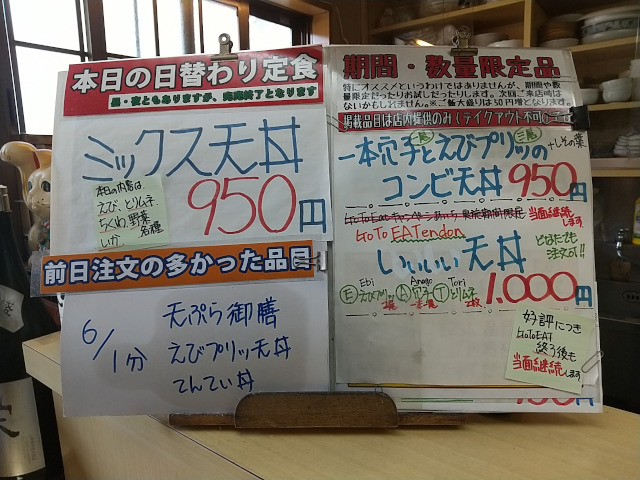 本日の日替わり定食
昼・夜ともありますが、完売終了となります
ミックス天丼
本日の内容は、
えび、とりムネ、
ちくわ、野菜
各種
いか、
950円
前日注文の多かった品目
6/1分
天ぷら御膳
えびプリッツ天丼
てんてい丼
期間・数量限定品
特にオススメというわけではありませんが、期間や数
量限定だったりお試しだったりします。次回ご来店時は
ないかもしれません。※ご飯大盛りは50円増となります。
掲載品目は店内提供のみ(テイクアウト不可)
一本穴子とえびプリッツの
+しその葉
コンビ天丼 950円
当面継続
します
GoToEATendon
いいいい天丼
どなたでも
注文可!!
Ebi Anago Tori
Ⓔえびプリッツ Ⓐ穴子 Ⓣとりムネ
1,000円
好評につき
GoToEAT
終了後も
当面継続します